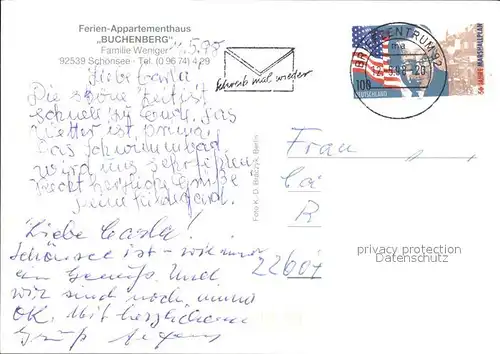 Ferien-Appartementhaus
„BUCHENBERG"
Familie Weniger
92539 Schönsee · Tel. (0 96 74) 4 29
.5.98
Liebe Carla
Die schöne Zeit ist
schnell zu Ende. Das
Wetter ist prima,
Das Schwimmbad
wird uns sehr fehlen
Recht herzliche Grüße
Schreib mal wieder
BRIEFZENTRUM 92
100
DEUTSCHLAND
50 JAHRE MARSHALLPLAN
Foto K.-D. Berlin
Frau
Ca
R
22607
privacy protection
Datenschutz
Liebe Carla!
Schönsee ist – wie immer
ein Genuß. Und
wir sind noch immer
OK. Mit herzlichem
Gruß